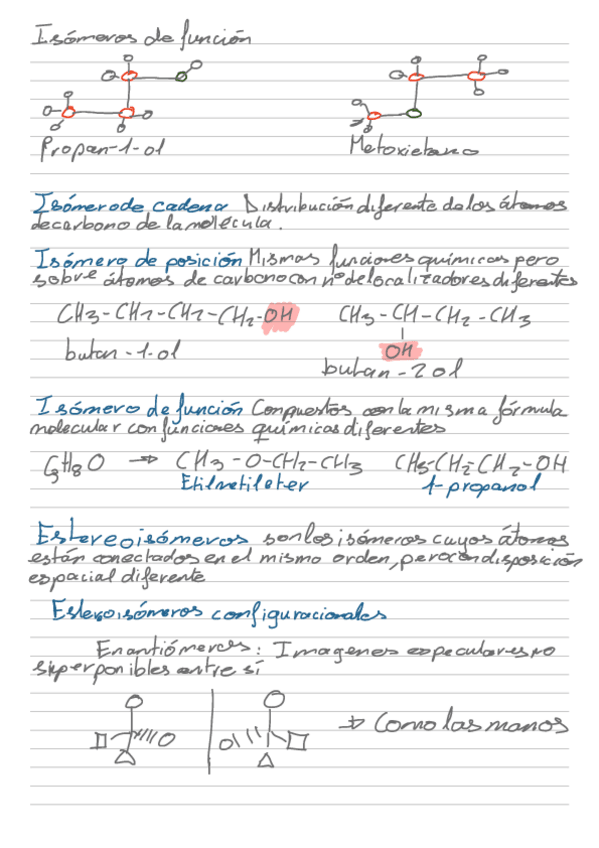 Isómeros de función
Propan-1-ol Metoxietano
Isómero de cadena Distribución diferente de los átomos
de carbono de la molécula.
Isómero de posición Mismas funciones químicas pero
sobre átomos de carbono con nº de localizadores diferentes
CH3-CH2-CH2-CH2-OH CH3-CH-CH2-CH3
OH
butan-1-ol
butan-2 ol
Isómero de función Conpuestos con la misma fórmula
molecular con funciones químicas diferentes
C3H8O → CH3-O-CH2-CH3 CH3-CH2-CH2-OH
Etilmetileter 1-propanol
Estereoisómeros son los isómeros cuyos átomos
están conectados en el mismo orden, pero con disposición
espacial diferente
Esteroisómeros configuracionales
Enantiómeros: Imagenes especulares no
superponibles entre sí
⇒ Como las manos